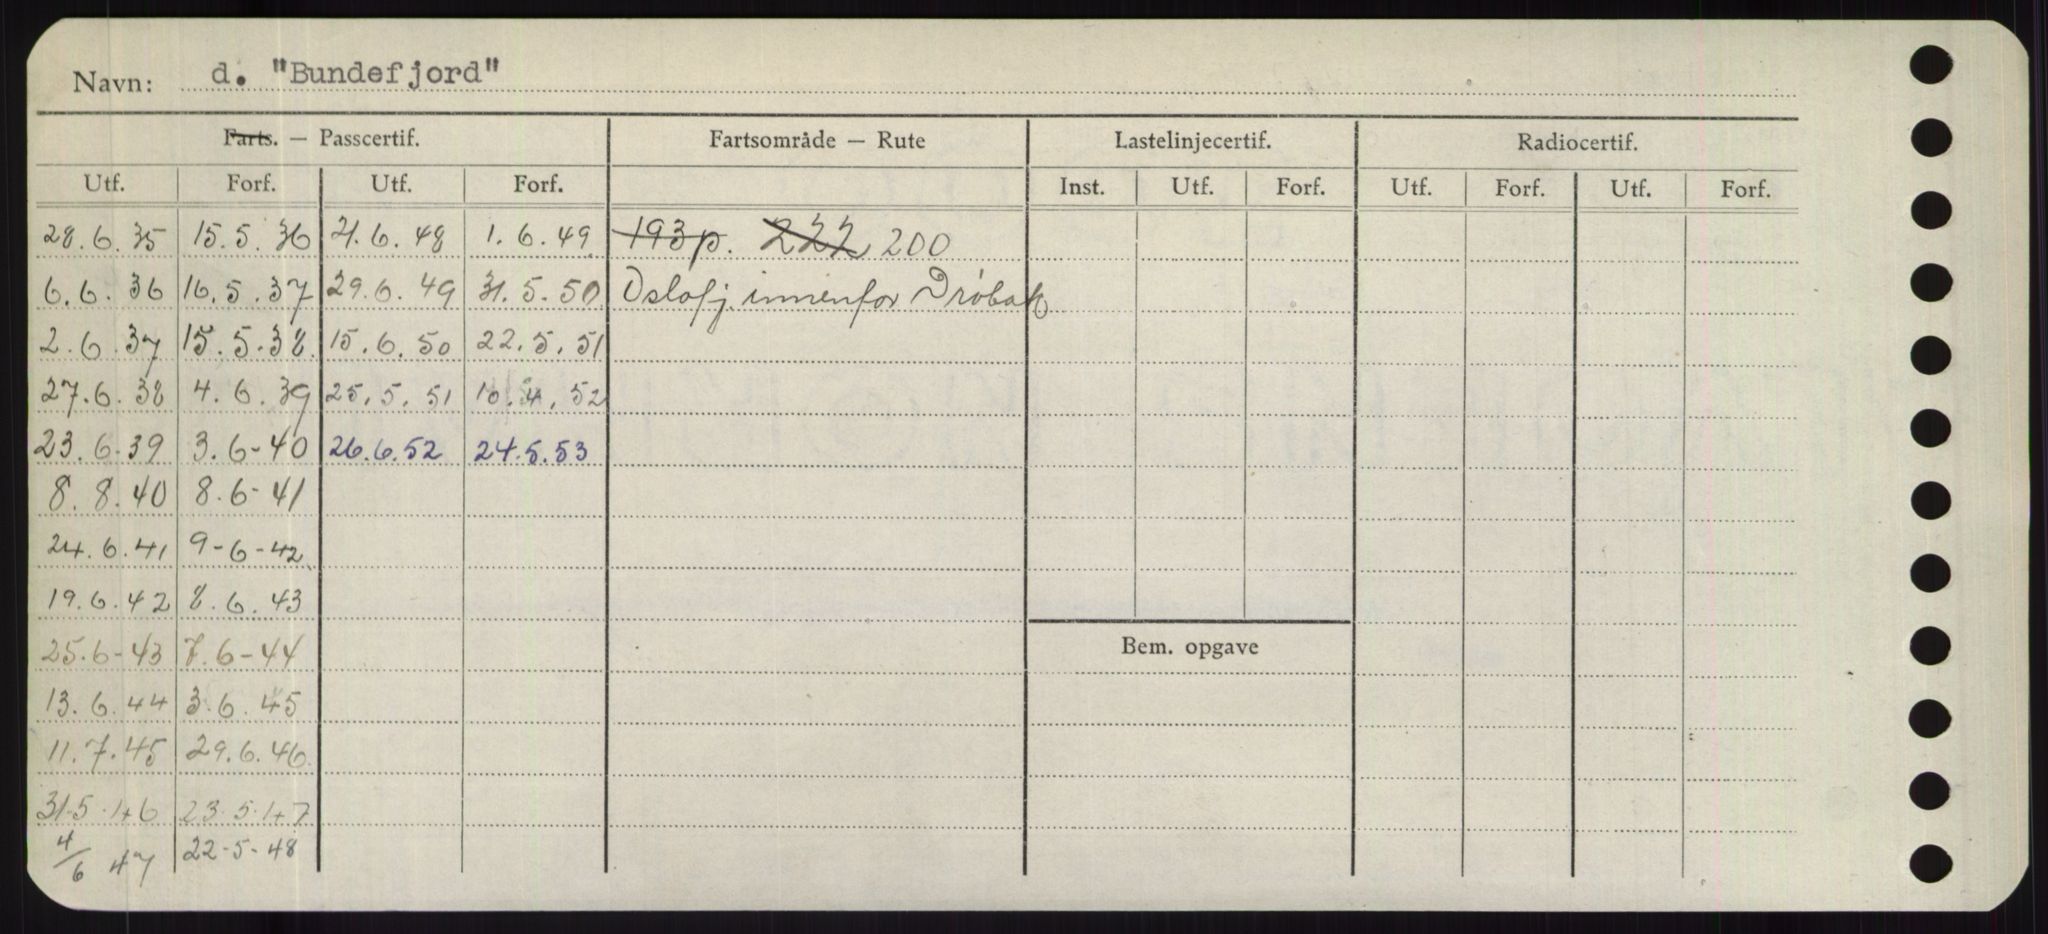 Navn: d. "Bundefjord"
Farts. — Passcertif. Fartsområde — Rute Lastelinjecertif. Radiocertif.
Utf. Forf. Utf. Forf. Inst. Utf. Forf. Utf. Forf. Utf. Forf.
28.6.35 15.5.36 21.6.48 1.6.49 193p. 222 200
6.6.36 16.5.37 29.6.49 31.5.50 Oslofj. innenfor Drøbak
2.6.37 15.5.38 15.6.50 22.5.51
27.6.38 4.6.39 25.5.51 10.4.52
23.6.39 3.6-40 26.6.52 24.5.53
8.8.40 8.6-41
24.6.41 9-6-42
19.6.42 8.6.43
25.6-43 7.6-44
Bem. opgave
13.6.44 3.6.45
11.7.45 29.6.46
31-5.46 23.5.47
4/6 47 22-5-48